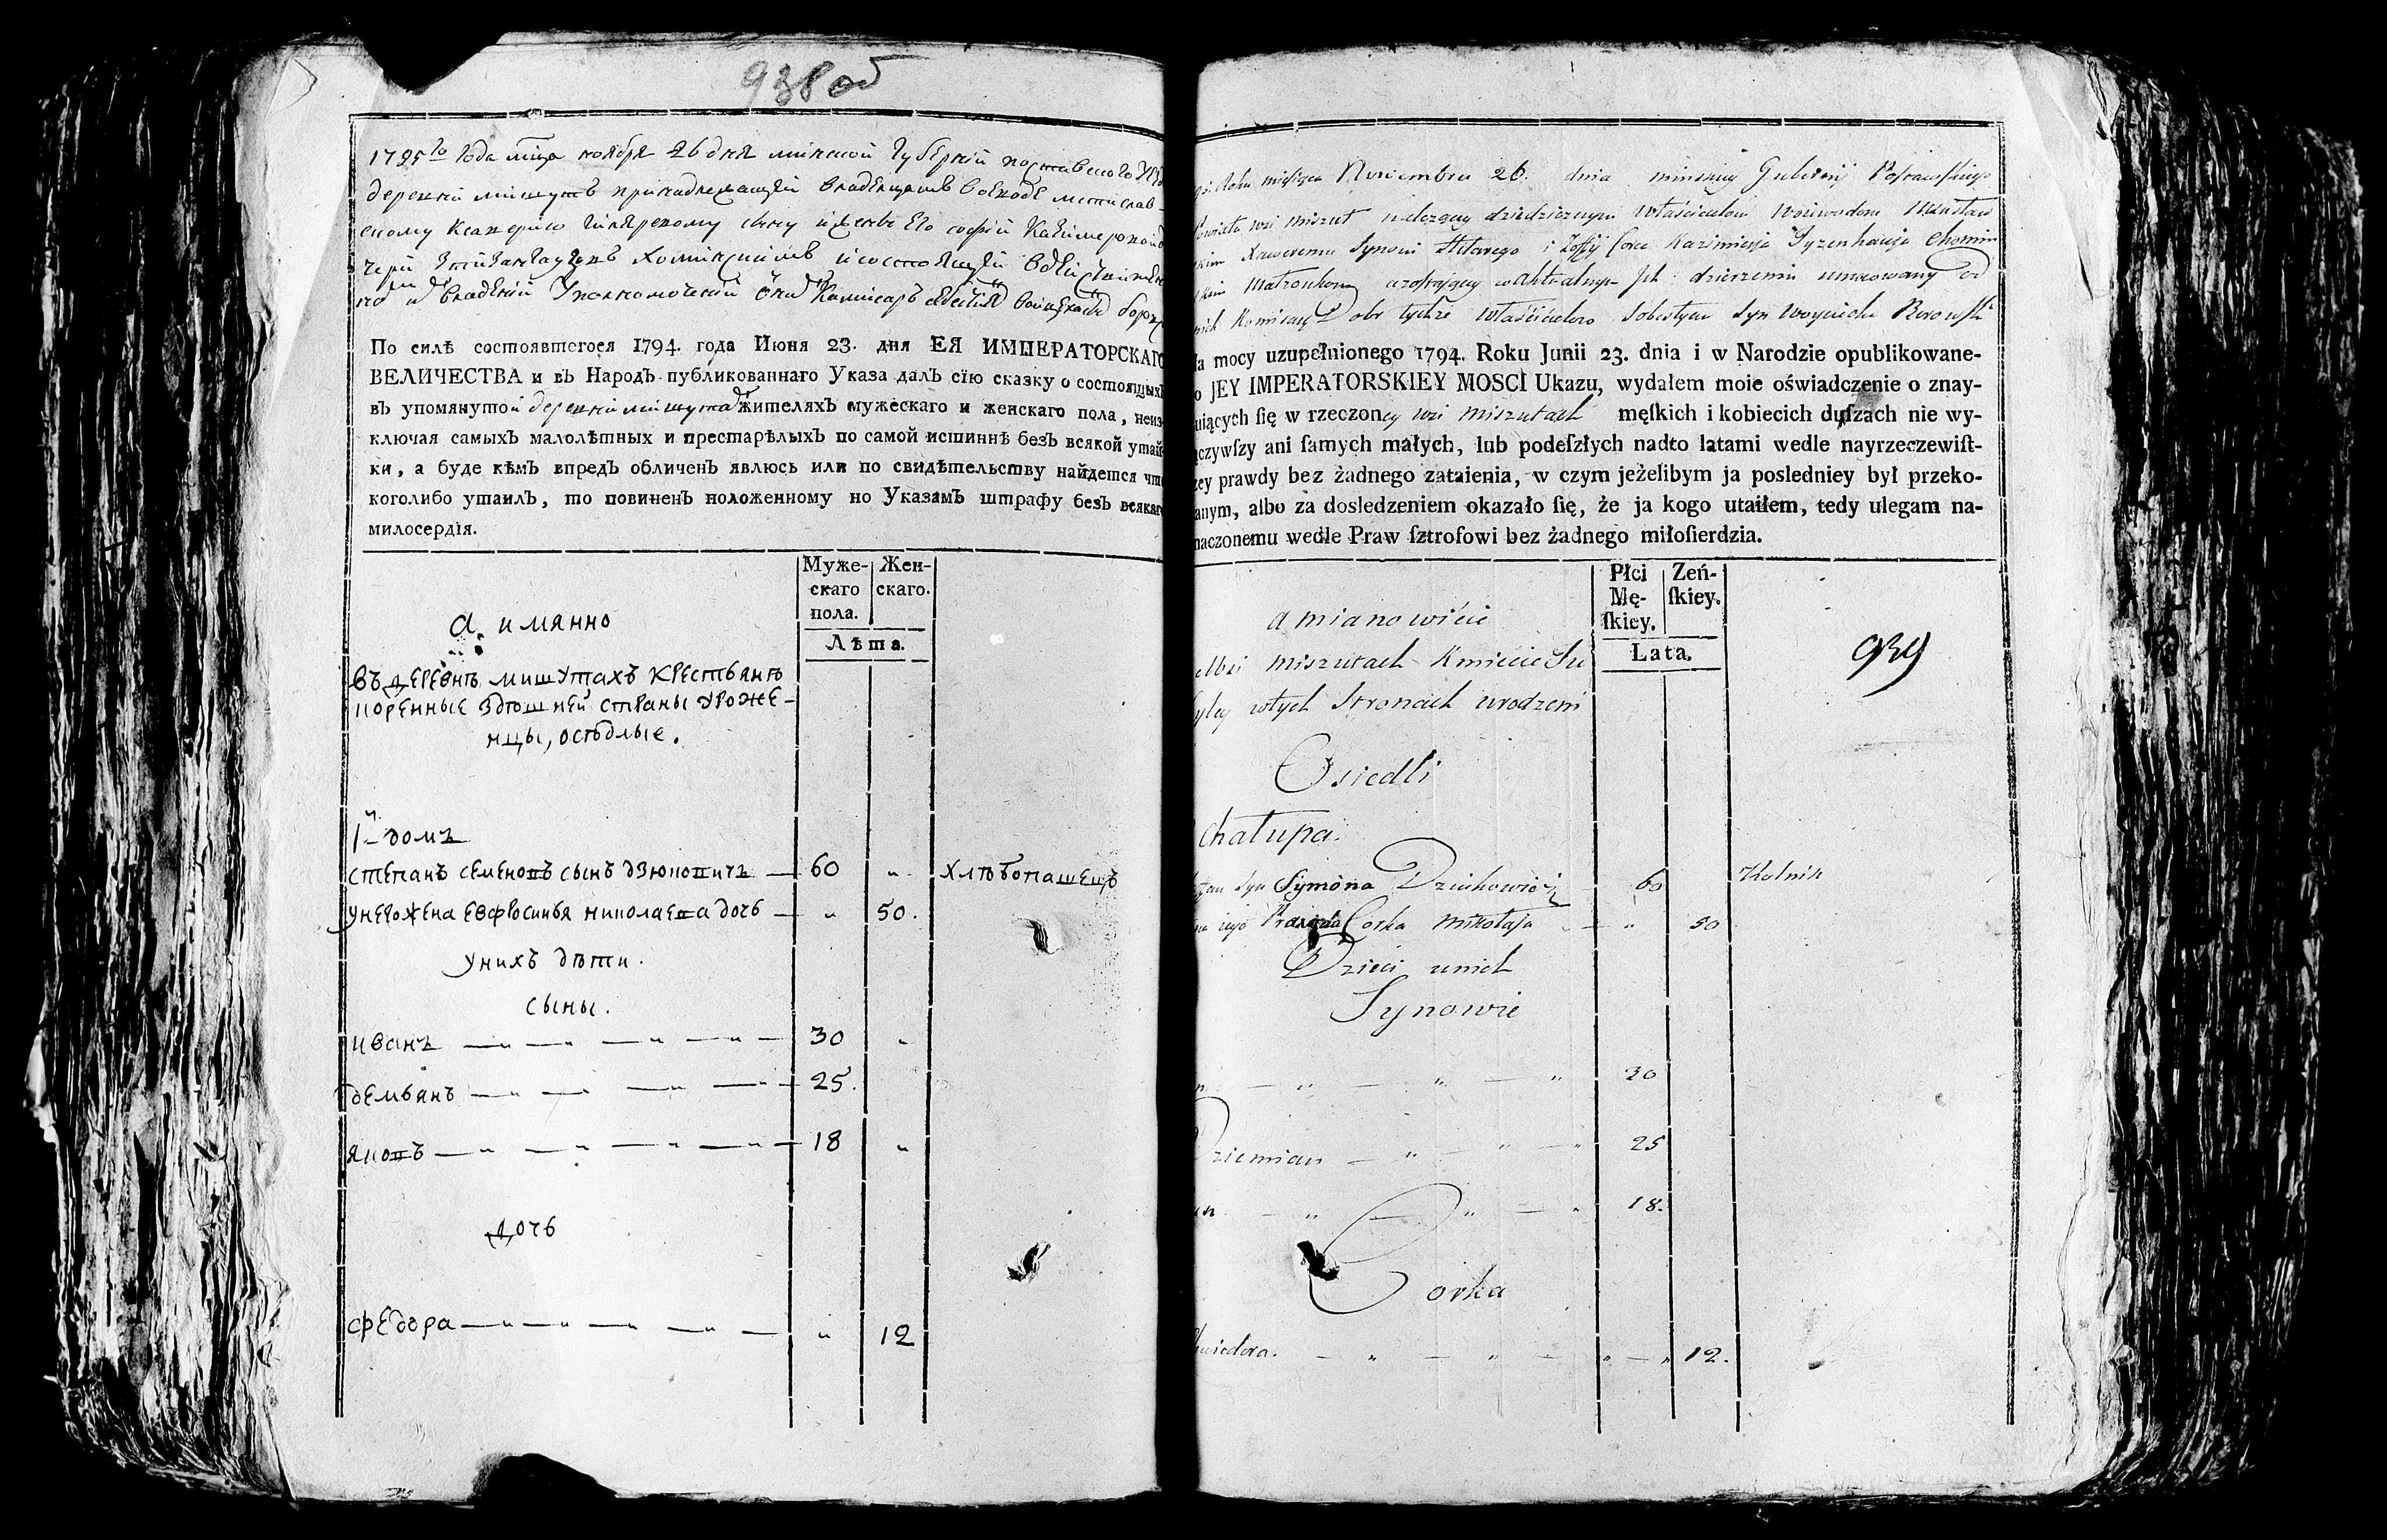 938 об
1795го года мца ноября 26 дня минской губернии поставского
деревни мишутъ принадлежащей владельцамъ воеводе мстислав-
скому
По силѣ состоявшегося 1794. года Июня 23. дня ЕЯ ИМПЕРАТОРСКАГО
ВЕЛИЧЕСТВА и въ Народъ публикованнаго Указа далъ сїю сказку о состоящыхъ
въ упомянутой деревни мишутахъ жителяхъ мужескаго и женскаго пола, неиз
ключая самыхъ малолѣтныхъ и престарѣлыхъ по самой истиннѣ безъ всякой утай
ки, а буде кѣмъ впредъ обличенъ явлюсь или по свидѣтельству найдется что
коголибо утаилъ, то повиненъ положенному по Указамъ штрафу безъ всякаго
милосердїя.
Муже-
скаго
пола.
Жен-
скаго.
Лѣта.
а имянно
въ деревнѣ мишутахъ крестьянѣ
коренные здѣшней страны уроже-
нцы, осѣдлые.
1й домъ
степанъ семеновъ сынъ дзюковичъ — 60 " хлѣбопашецъ
унегожена евфросинья николаева дочь — " 50.
унихъ дѣти.
сыны.
иванъ — " — " — " — " — 30 "
демьянъ — " — " — " — " 25.
яковъ — " — " — " — " — 18 "
дочь
федора — " — " — " — " — " 12
Roku miesiąca Novembra 26. dnia minskiey Gubernij Postawskiego
Powiatu wsi Miszut należącey dziedzicznym Właścicielom Woiewodom
Xaweremu Synowi i Zofij Corce Kazimierza Tyzenhauza Chomin
Małżonkom
Komisarz Dobr tychże Właścicielow Sobestyan Syn Woyciecha Borowski
a mocy uzupełnionego 1794. Roku Junii 23. dnia i w Narodzie opublikowane-
o JEY IMPERATORSKIEY MOSCI Ukazu, wydałem moie oświadczenie o znay-
uiących ſię w rzeczoney wsi Miszutach męſkich i kobiecich duſzach nie wy-
ączywſzy ani ſamych małych, lub podeſzłych nadto latami wedle nayrzeczewiſt-
zey prawdy bez żadnego zataienia, w czym jeżelibym ja posledniey był przeko-
anym, albo za dosledzeniem okazało ſię, że ja kogo utaiłem, tedy ulegam na-
naczonemu wedle Praw ſztrofowi bez żadnego miłoſierdzia.
Płci
Mę-
ſkiey.
Zeń-
ſkiey.
Lata.
939
a mianowićie
Miszutach Kmiecie Su
wtych Stronach urodzeni
Osiedli
Chałupa.
Syn Symona Dziukowicz — 60 Rolnik
iego Corka Mikołaja — " 50
Dzieci unich
Synowie
n — " — " — " 30
Dziemian — " — " — " 25
— " — " — " 18.
Corka
Chwiedora. — " — " — " — " 12.